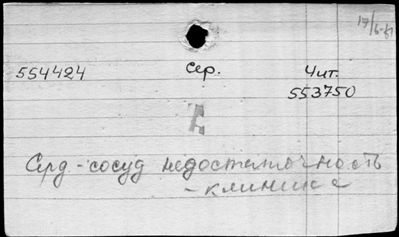 17/6-61
554424 Сер. Чит.
553750
Серд-сосуд недостаточность
- клиника